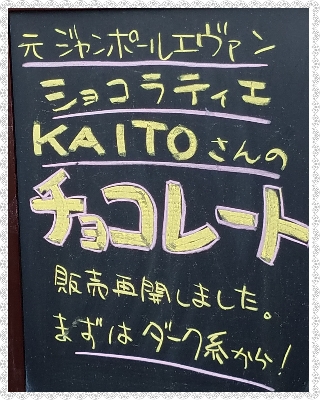 元ジャンポールエヴァン
ショコラティエ
KAITOさんの
チョコレート
販売再開しました。
まずはダーク系から!